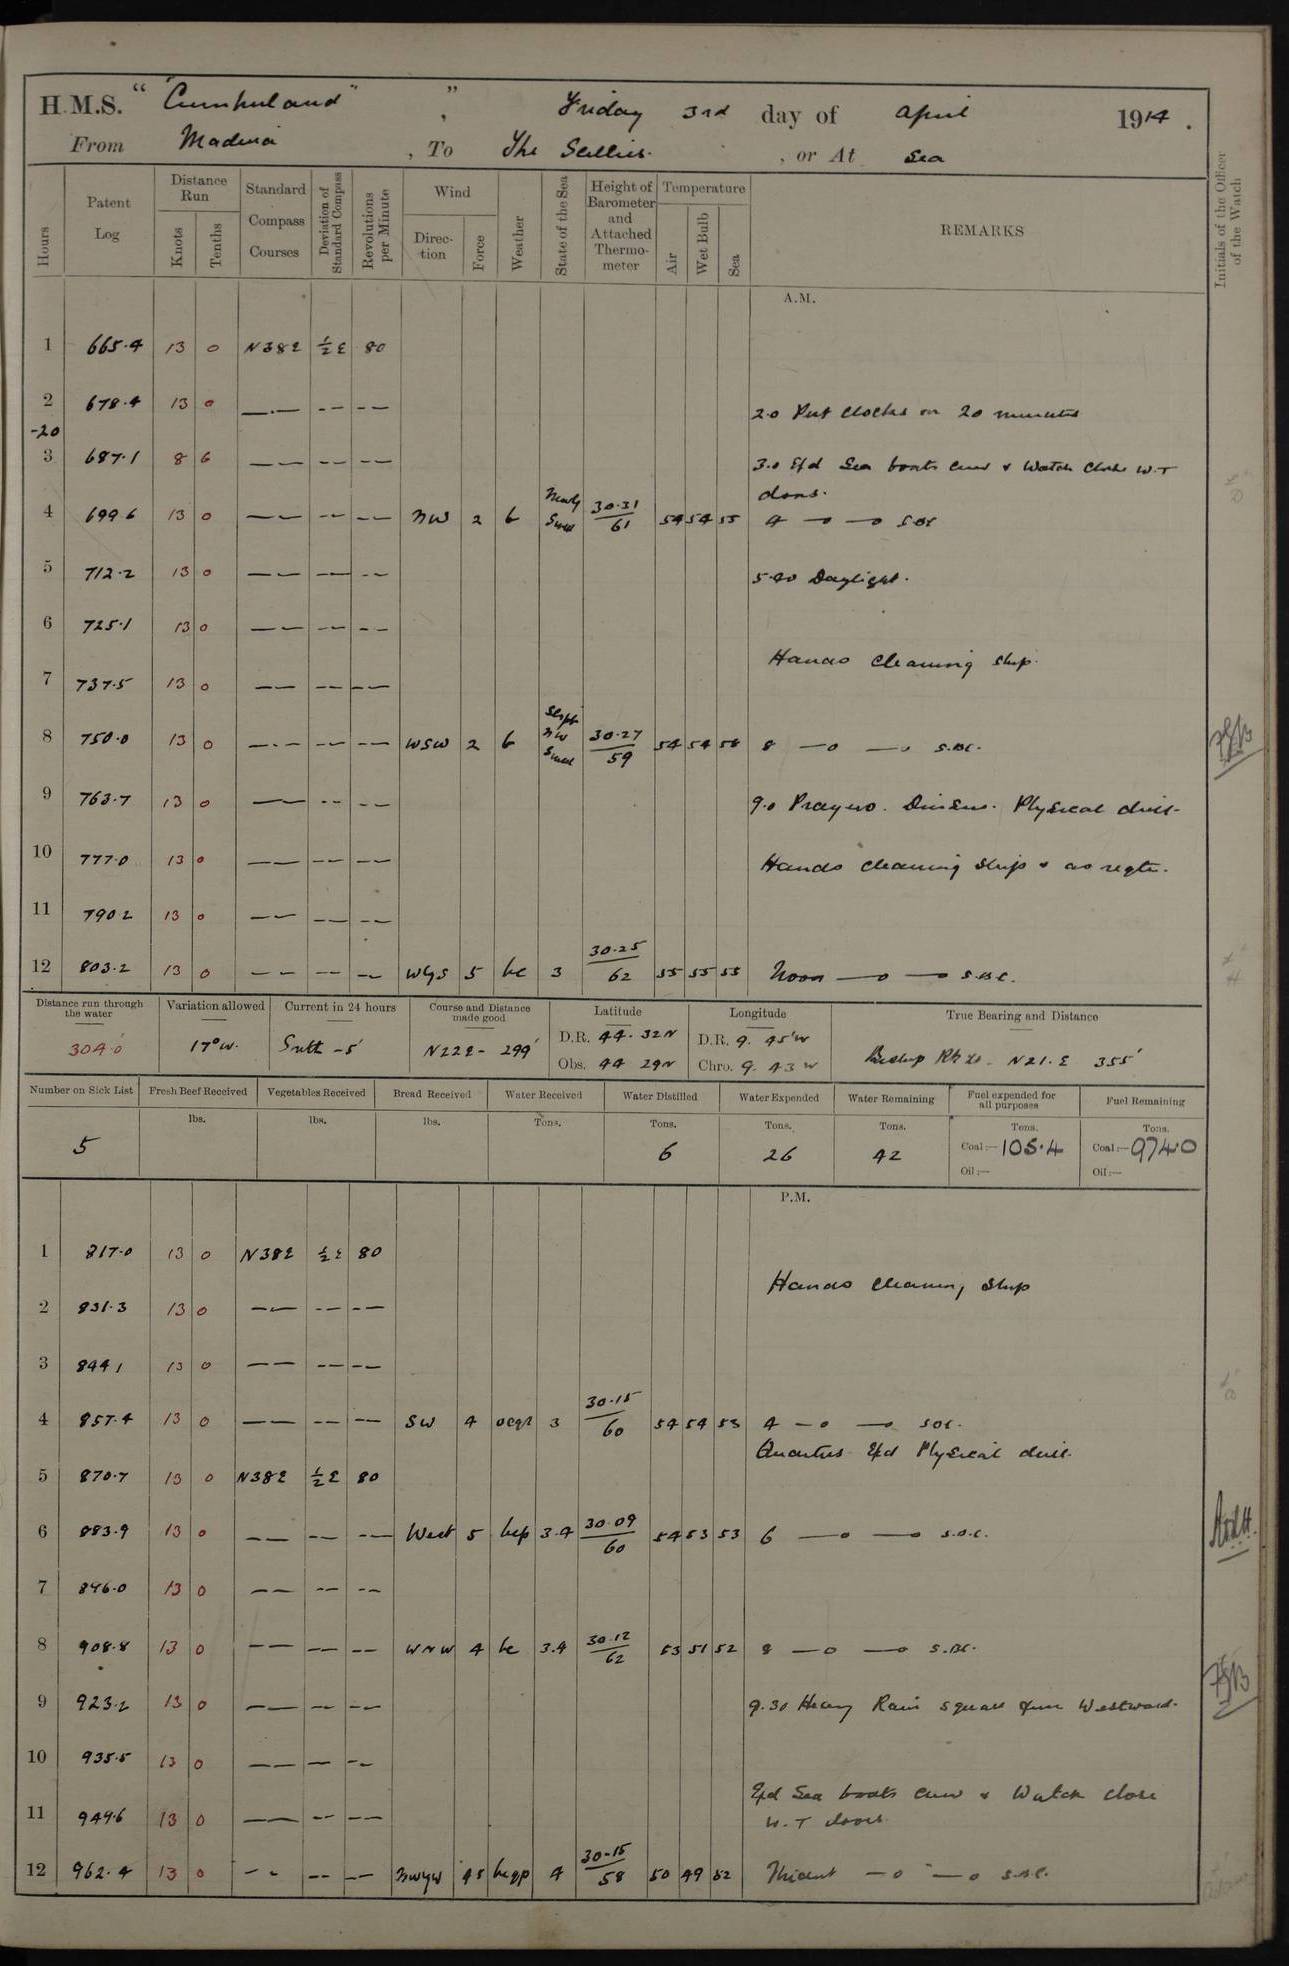 H.M.S. "Cumberland", Friday 3rd day of April 1914.
From Madeira, To The Scillies, or At Sea
Hours
Patent Log
Distance Run
Knots
Tenths
Standard Compass Courses
Deviation of Standard Compass
Revolutions per Minute
Wind
Direction
Force
Weather
State of the Sea
Height of Barometer and Attached Thermometer
Temperature
Air
Wet Bulb
Sea
REMARKS
Initials of the Officer of the Watch
A.M.
1 665.4 13 0 N38E ½E 80
2 678.4 13 0 —.— -- -- 2.0 Put clocks on 20 minutes
-20
3 687.1 8 6 —— -- -- 3.0 Exd Sea boats crew & Watch close W.T doors.
4 699.6 13 0 —— -- -- NW 2 b 30.31/61 54 54 55 4 —o —o
5 712.2 13 0 —— -- -- 5.40 Daylight.
6 725.1 13 0 —— -- --
Hands cleaning ship.
7 737.5 13 0 —— -- --
8 750.0 13 0 —.— -- -- WSW 2 b Slight NW Swell 30.27/59 54 54 58 8 —o —o S.B.C.
9 763.7 13 0 —— -- -- 9.0 Prayers. Divisions. Physical drill.
10 777.0 13 0 —— -- -- Hands cleaning ship & as reqte.
11 790.2 13 0 —— -- --
12 803.2 13 0 —— -- -- WbyS 5 bc 3 30.25/62 55 55 55 Noon —o —o S.B.C.
Distance run through the water
304.0'
Variation allowed
17°W.
Current in 24 hours
South - 5'
Course and Distance made good
N22E - 299'
Latitude
D.R. 44.32N
Obs. 44 29N
Longitude
D.R. 9. 45'W
Chro. 9. 43 W
True Bearing and Distance
Bishop Rk Lt. N21.E 355'
Number on Sick List
5
Fresh Beef Received
lbs.
Vegetables Received
lbs.
Bread Received
lbs.
Water Received
Tons.
Water Distilled
Tons.
6
Water Expended
Tons.
26
Water Remaining
Tons.
42
Fuel expended for all purposes
Tons.
Coal:— 105.4
Oil:—
Fuel Remaining
Tons.
Coal:— 974.0
Oil:—
P.M.
1 817.0 13 0 N38E ½E 80
Hands cleaning ship
2 831.3 13 0 —— -- --
3 844 1 13 0 —— -- --
4 857.4 13 0 —— -- -- SW 4 3 30.15/60 54 54 53 4 —o —o
Quarters Exd Physical drill.
5 870.7 13 0 N38E ½E 80
6 883.9 13 0 —— -- -- West 5 bcp 3.4 30.09/60 54 53 53 6 —o —o
7 896.0 13 0 —— -- --
8 908.8 13 0 —— -- -- WNW 4 bc 3.4 30.12/62 53 51 52 8 —o —o S.B.C.
9 923.2 13 0 —— -- -- 9.30 Heavy Rain squall from Westward.
10 935.5 13 0 —— -- --
Exd Sea boats crew & Watch close
11 949.6 13 0 —— -- -- W.T doors.
12 962.4 13 0 -- -- -- NWbyW 4.5 bcqp 4 30.15/58 50 49 52 Midnt —o —o S.B.C.